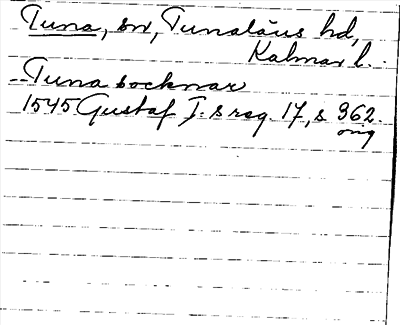 Tuna, sn, Tunaläns hd,
Kalmar l.
Tuna socknar
1545 Gustaf I:s reg. 17, s 362.
orig